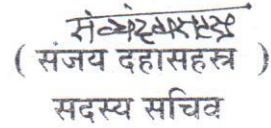 ( संजय दहासहस्त्र )
सदस्य सचिव